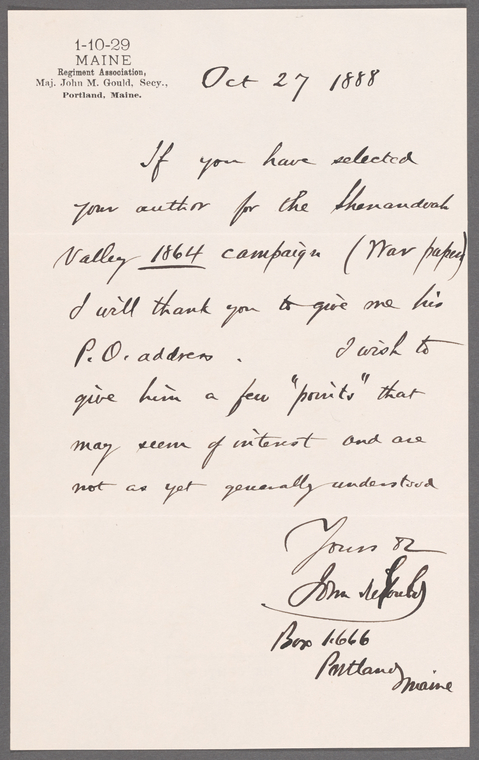 1-10-29
MAINE
Regiment Association,
Maj. John M. Gould, Secy.,
Portland, Maine.
Oct 27 1888
If you have selected
your author for the Shenandoah
Valley 1864 campaign (War papers)
I will thank you to give me his
P.O. address. I wish to
give him a few "points" that
may seem of interest and are
not as yet generally understood
Yours &c
John M Gould
Box 1666
Portland
Maine